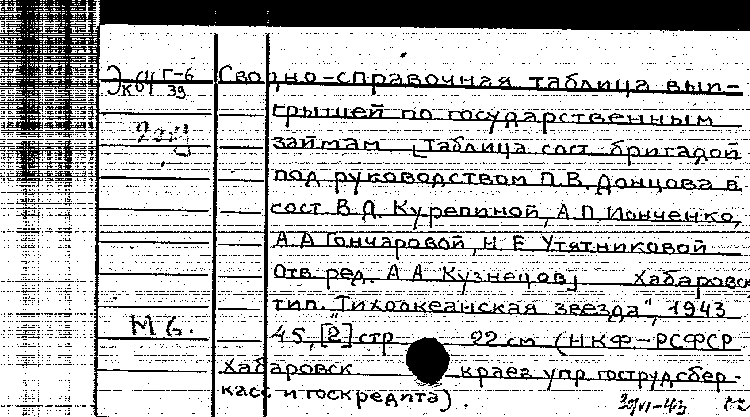 Эк64 Г-6/39 Сводно-справочная таблица выи-
грышей по государственным
займам [Таблица сост. бригадой
под руководством П.В. Донцова в
сост. В.Д. Курепиной, А.П. Ионченко,
А.А. Гончаровой, Н.Е. Утятниковой
Отв. ред. А.А. Кузнецов] Хабаровск
тип. "Тихоокеанская звезда", 1943
М6. 45, [2] стр 22 см (НКФ-РСФСР
Хабаровск краев упр гострудсбер-
касс и госкредита).